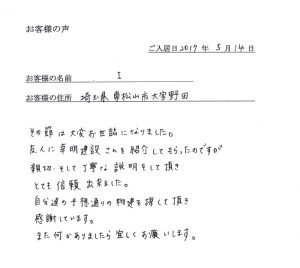 お客様の声
ご入居日2017年 5月14日
お客様の名前 I
お客様の住所 埼玉県東松山市大字野田
その節は大変お世話になりました。
友人に幸明建設さんを紹介してもらったのですが
親切、そして丁寧な説明をして頂き
とても信頼出来ました。
自分達の予想通りの物件を探して頂き
感謝しています。
また何かありましたら宜しくお願いします。